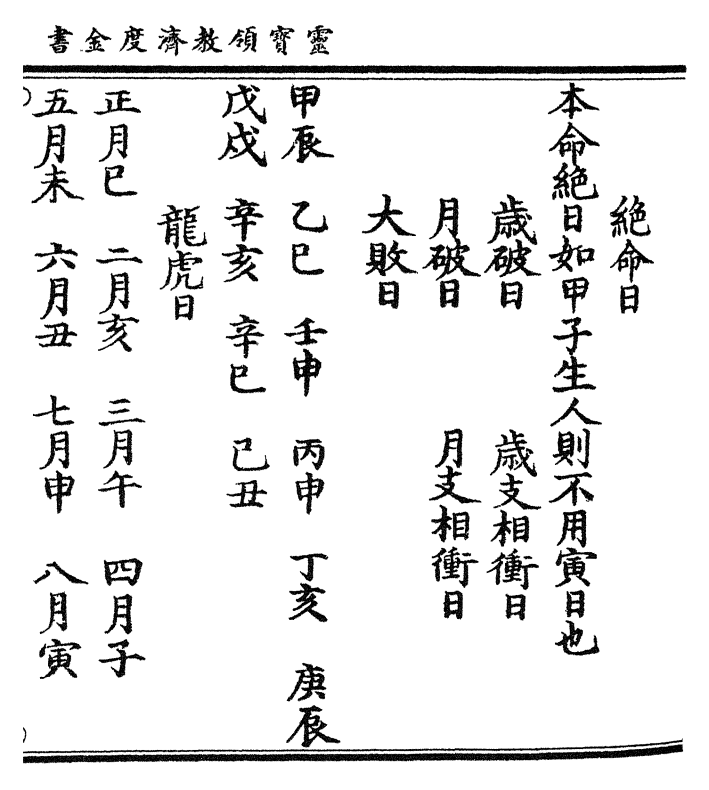 靈寶領教濟度金書
絕命日
本命絕日如甲子生人則不用寅日也
歲破日 歲支相衝日
月破日 月支相衝日
大敗日
甲辰 乙巳 壬申 丙申 丁亥 庚辰
戊戌 辛亥 辛巳 己丑
龍虎日
正月巳 二月亥 三月午 四月子
五月未 六月丑 七月申 八月寅